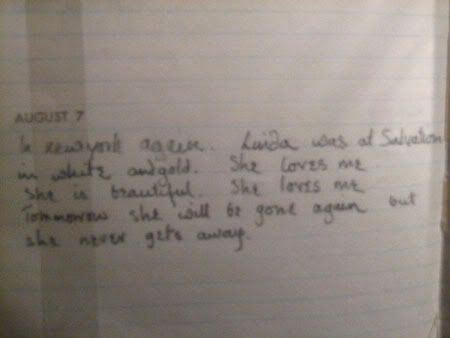 AUGUST 7
In newyork again. Linda was at Salvation
in white and gold. She loves me.
She is beautiful. She loves me
Tommorrow she will be gone again but
she never gets away.